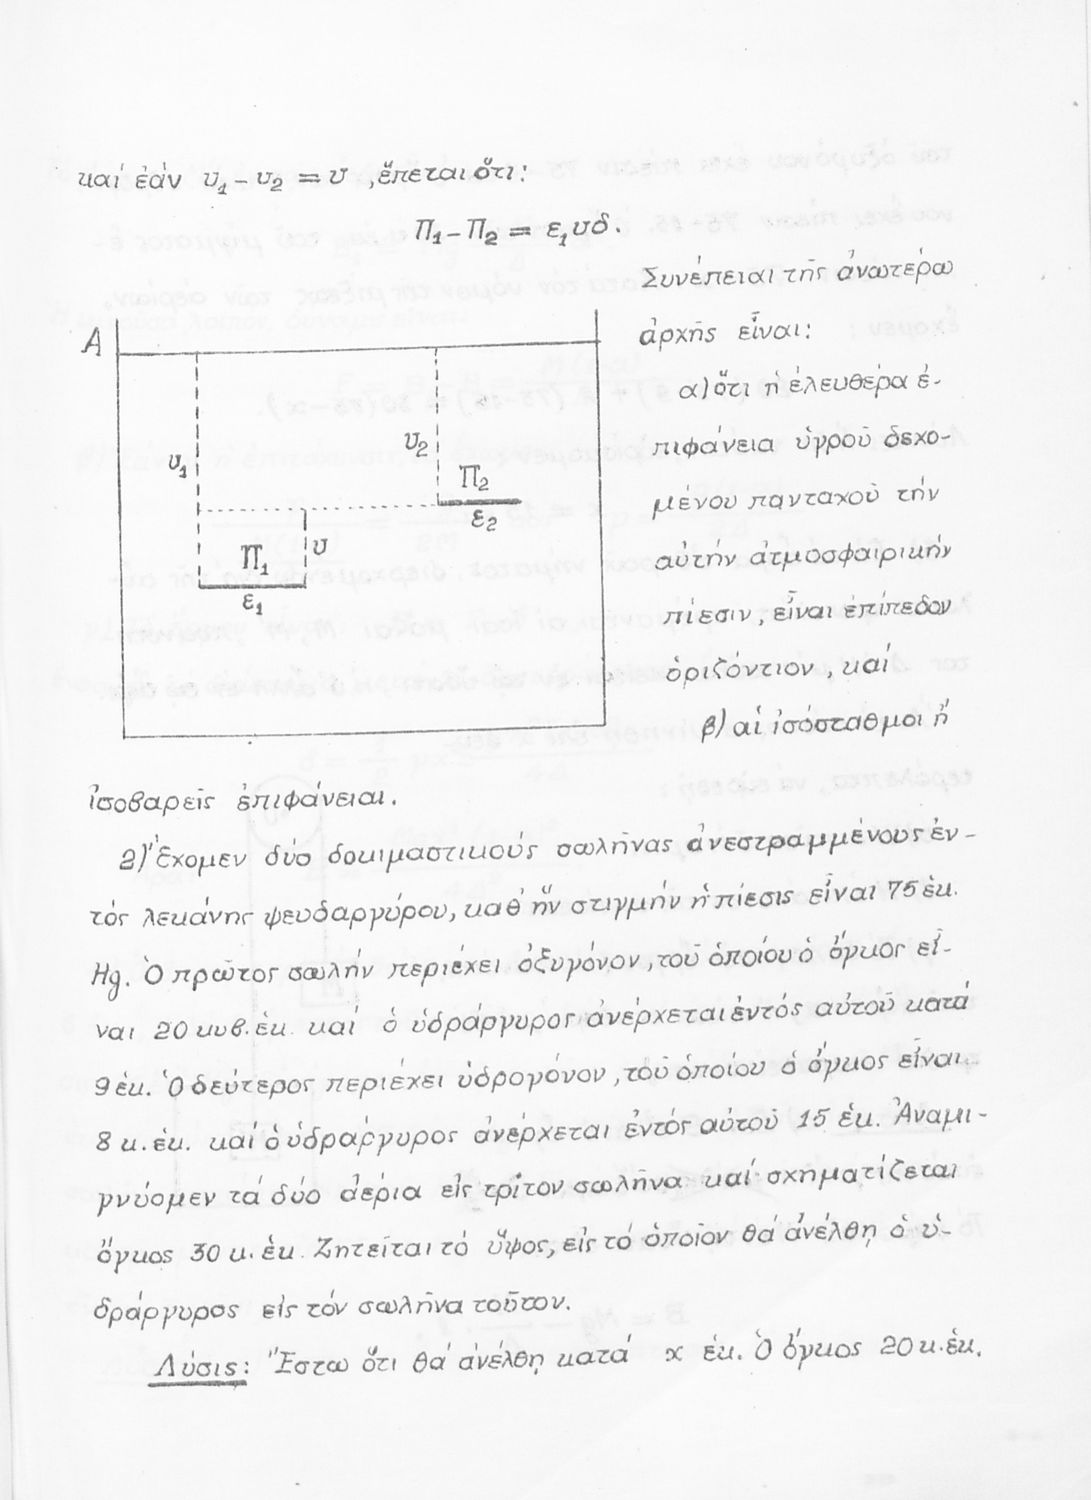 καί ἐάν υ₁ - υ₂ = υ , ἕπεται ὅτι:
Π₁ - Π₂ = ε₁υδ.
Συνέπειαι τῆς ἀνωτέρω
ἀρχῆς εἶναι:
α) ὅτι ἡ ἐλευθέρα ἐ-
πιφάνεια ὑγροῦ δεχο-
μένου πανταχοῦ τήν
αὐτήν ἀτμοσφαιρικήν
πίεσιν, εἶναι ἐπίπεδον
ὁριζόντιον, καί
β) αἱ ἰσόσταθμοι ἤ
Α
υ₁
υ₂
Π₂
ε₂
Π₁
υ
ε₁
ἰσοβαρεῖς ἐπιφάνειαι.
2) Ἔχομεν δύο δοκιμαστικούς σωλῆνας ἀνεστραμμένους ἐν-
τός λεκάνης ψευδαργύρου, καθ' ἥν στιγμήν ἡ πίεσις εἶναι 75 ἑκ.
Hg. Ὁ πρῶτος σωλήν περιέχει ὀξυγόνον, τοῦ ὁποίου ὁ ὄγκος εἶ-
ναι 20 κυβ. ἑκ. καί ὁ ὑδράργυρος ἀνέρχεται ἐντός αὐτοῦ κατά
9 ἑκ. Ὁ δεύτερος περιέχει ὑδρογόνον, τοῦ ὁποίου ὁ ὄγκος εἶναι
8 κ. ἑκ. καί ὁ ὑδράργυρος ἀνέρχεται ἐντός αὐτοῦ 15 ἑκ. Ἀναμι-
γνύομεν τά δύο ἀέρια εἰς τρίτον σωλῆνα καί σχηματίζεται
ὄγκος 30 κ. ἑκ. Ζητεῖται τό ὕψος, εἰς τό ὁποῖον θά ἀνέλθῃ ὁ ὑ-
δράργυρος εἰς τόν σωλῆνα τοῦτον.
Λύσις: Ἔστω ὅτι θά ἀνέλθῃ κατά x ἑκ. Ὁ ὄγκος 20 κ. ἑκ.